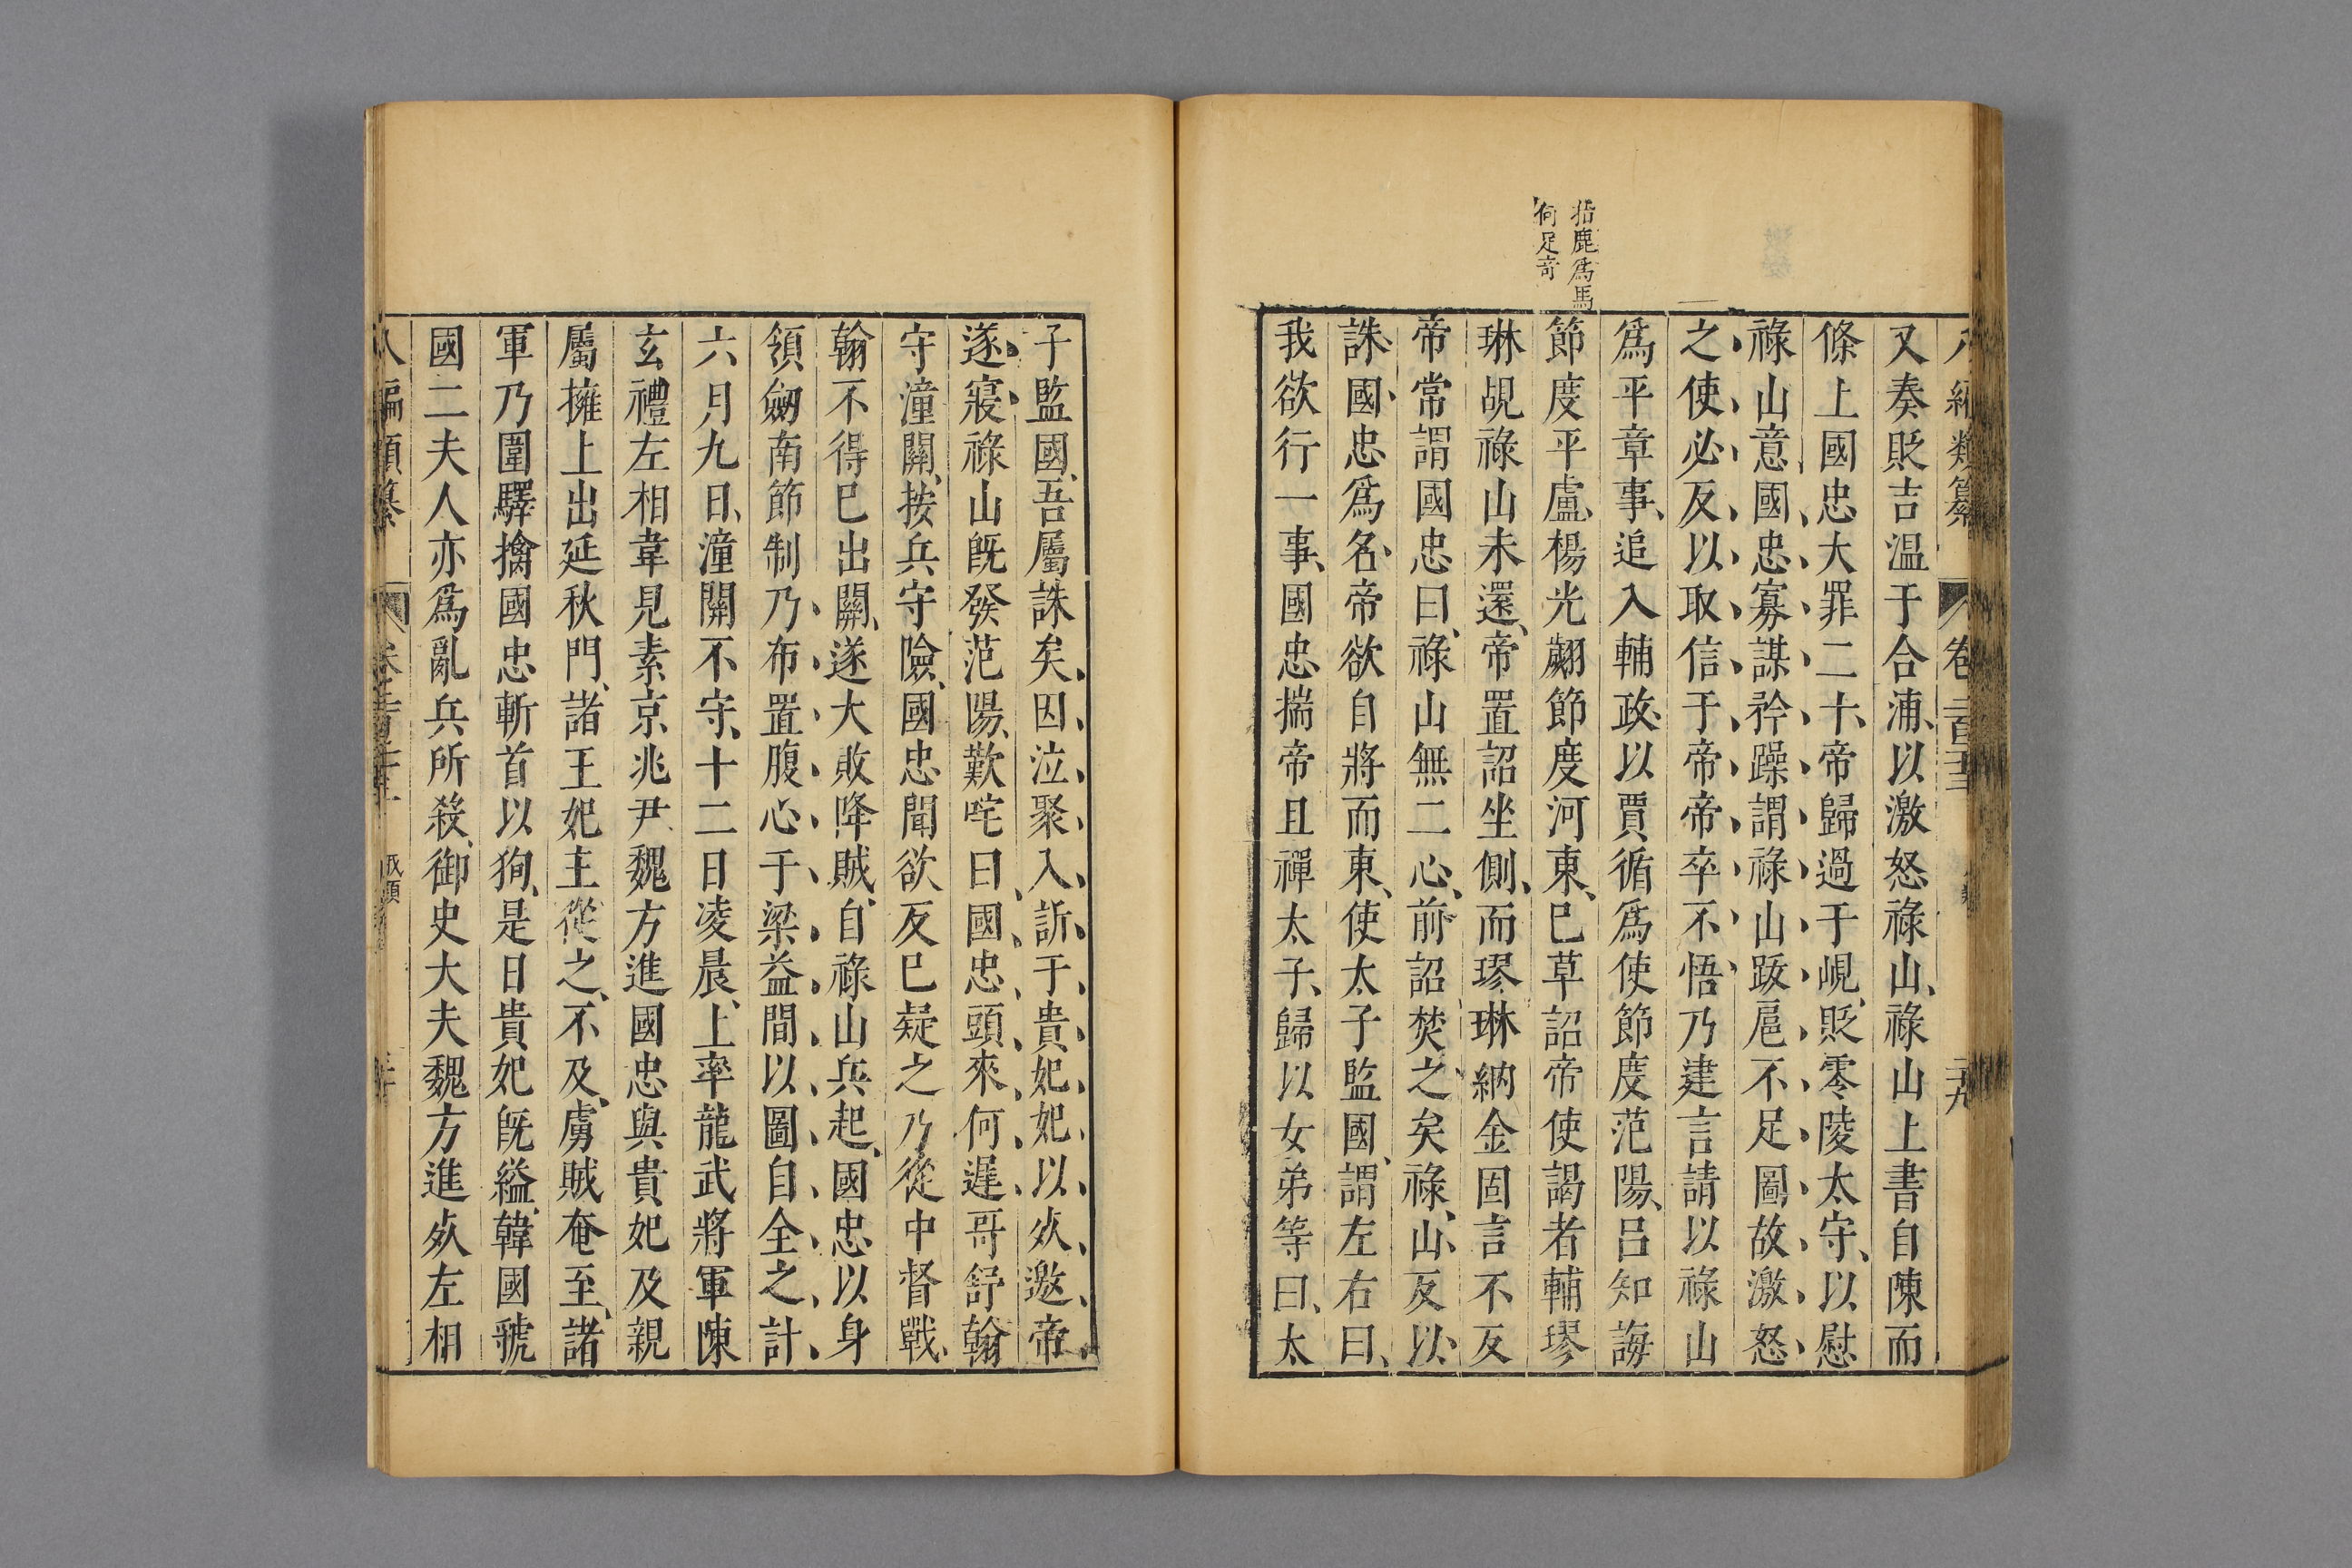 指鹿爲馬
何足奇
又奏貶吉温于合浦、以激怒祿山、祿山上書自陳而
條上國忠大罪二十、帝歸過于峴、貶零陵太守、以慰
祿山意、國忠寡謀矜躁謂祿山跋扈不足圖故激怒
之使必反以取信于帝帝卒不悟乃建言請以祿山
爲平章事、追入輔政、以賈循爲使節度范陽、呂知誨
節度平盧、楊光翽節度河東、巳草詔帝使謁者輔璆
琳覘祿山未還、帝置詔坐側、而璆琳納金固言不反
帝常謂國忠曰、祿山無二心、前詔焚之矣祿山反以
誅國忠爲名、帝欲自將而東、使太子監國、謂左右曰、
我欲行一事、國忠揣帝且禪太子、歸以女弟等曰、太
子監國、吾屬誅矣、因泣聚入訴于貴妃妃以𣦸邀帝
遂寢祿山既發范陽、歎咤曰、國忠頭來何遲哥舒翰
守潼關、按兵守險、國忠聞欲反巳疑之乃從中督戰、
翰不得巳出關、遂大敗降賊、自祿山兵起、國忠以身
領劒南節制乃布置腹心于梁益間以圖自全之計
六月九日、潼關不守、十二日凌晨、上率龍武將軍陳
玄禮左相韋見素京兆尹魏方進國忠與貴妃及親
屬擁上出延秋門、諸王妃主從之、不及、虜賊奄至、諸
軍乃圍驛擒國忠斬首以狥、是日貴妃既縊、韓國虢
國二夫人亦爲亂兵所殺、御史大夫魏方進𣦸左相